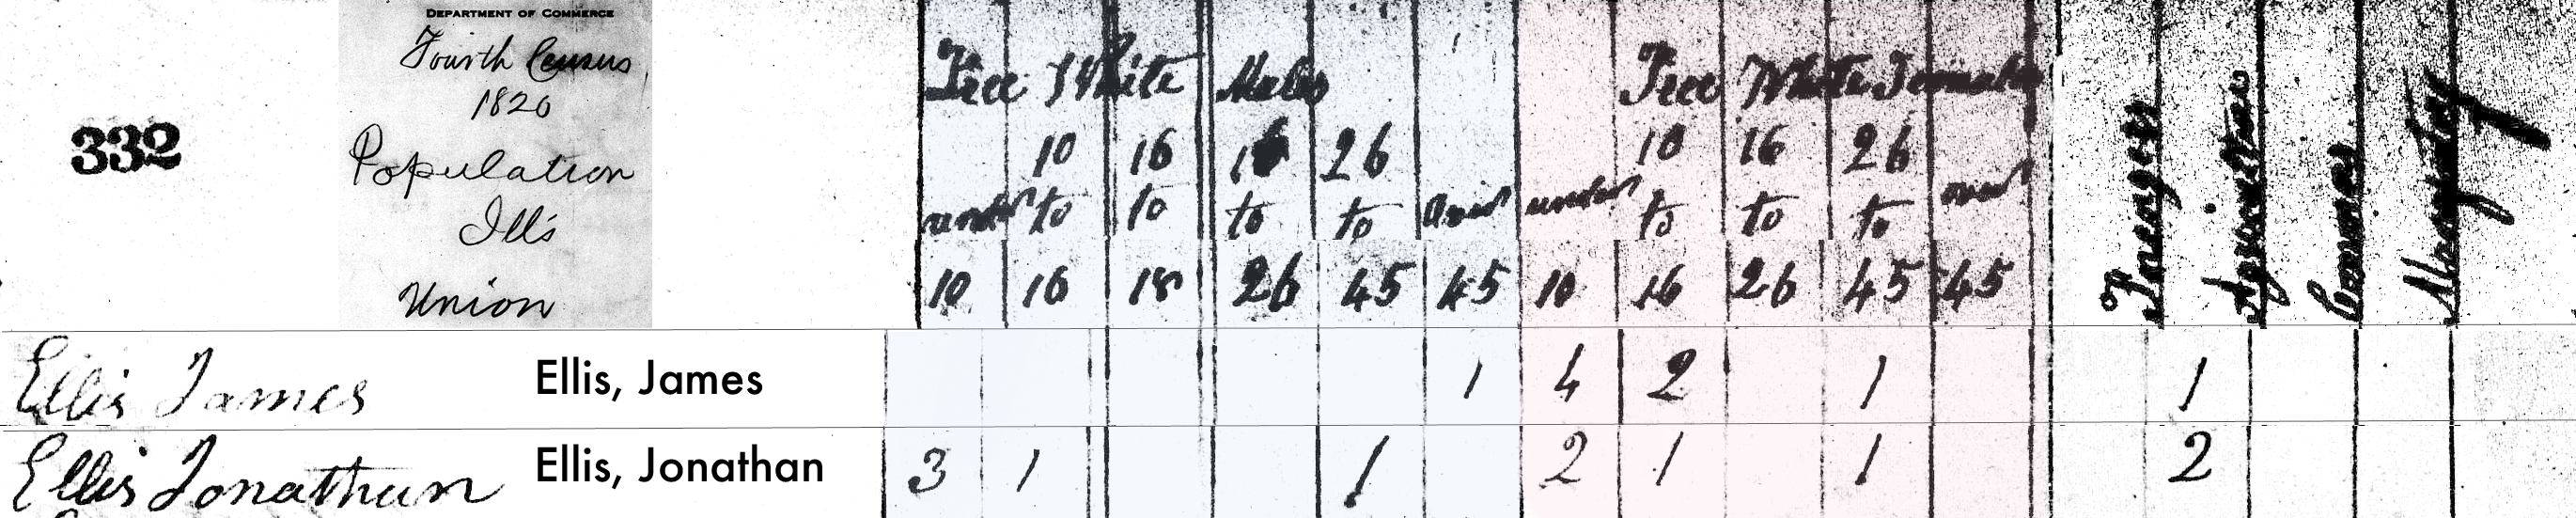 DEPARTMENT OF COMMERCE
Fourth Census
1820
332
Population
Ills
Union
Free White Males Free White Females
10 16 16 26 10 16 26
under to to to to over under to to to over
10 16 18 26 45 45 10 16 26 45 45
Foreigners
Agriculture
Commerce
Manufactory
Ellis James Ellis, James 1 4 2 1 1
Ellis Jonathan Ellis, Jonathan 3 1 1 2 1 1 2